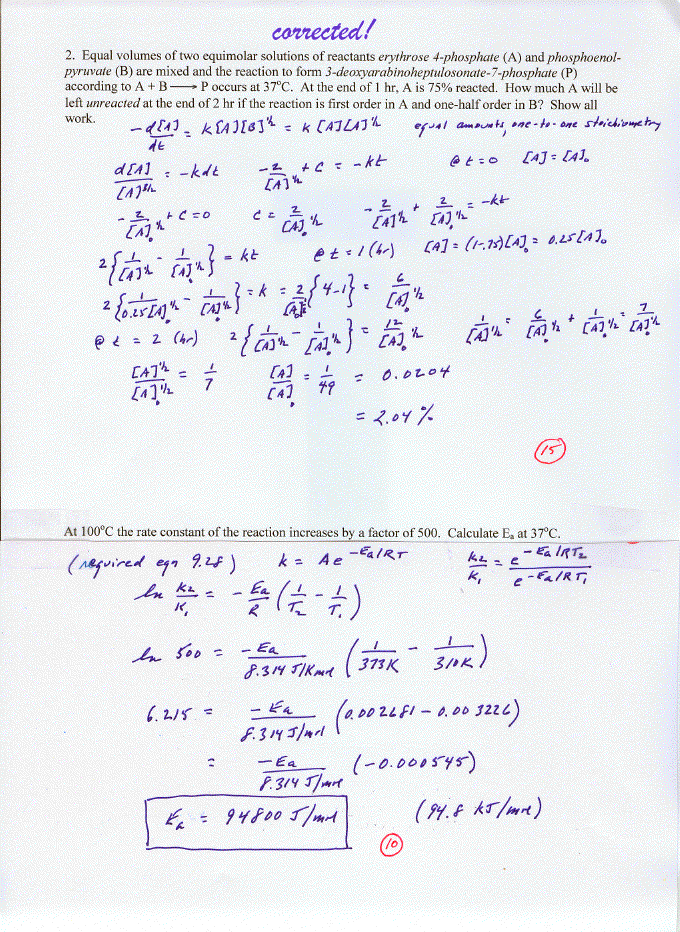 corrected!
2. Equal volumes of two equimolar solutions of reactants erythrose 4-phosphate (A) and phosphoenol-
pyruvate (B) are mixed and the reaction to form 3-deoxyarabinoheptulosonate-7-phosphate (P)
according to A + B ⟶ P occurs at 37°C. At the end of 1 hr, A is 75% reacted. How much A will be
left unreacted at the end of 2 hr if the reaction is first order in A and one-half order in B? Show all
work.
-d[A]/dt = k[A][B]^½ = k[A][A]^½ equal amounts, one-to-one stoichiometry
d[A]/[A]^3/2 = -kdt -2/[A]^½ + C = -kt @ t = 0 [A] = [A]₀
-2/[A]₀^½ + C = 0 C = 2/[A]₀^½ -2/[A]^½ + 2/[A]₀^½ = -kt
2{1/[A]^½ - 1/[A]₀^½} = kt @ t = 1 (hr) [A] = (1-.75)[A]₀ = 0.25[A]₀
2{1/0.25[A]₀^½ - 1/[A]₀^½} = k = 2/[A]₀^½ {4-1} = 6/[A]₀^½
@ t = 2 (hr) 2{1/[A]^½ - 1/[A]₀^½} = 12/[A]₀^½ 1/[A]^½ = 6/[A]₀^½ + 1/[A]₀^½ = 7/[A]₀^½
[A]^½/[A]₀^½ = 1/7 [A]/[A]₀ = 1/49 = 0.0204
= 2.04 %
15
At 100°C the rate constant of the reaction increases by a factor of 500. Calculate Eₐ at 37°C.
(required eqn 9.28) k = Ae^-Ea/RT k₂/k₁ = e^-Ea/RT₂ / e^-Ea/RT₁
ln k₂/k₁ = -Ea/R (1/T₂ - 1/T₁)
ln 500 = -Ea/8.314 J/Kmol (1/373K - 1/310K)
6.215 = -Ea/8.314 J/mol (0.002681 - 0.003226)
= -Ea/8.314 J/mol (-0.000545)
Ea = 94800 J/mol (94.8 kJ/mol)
10